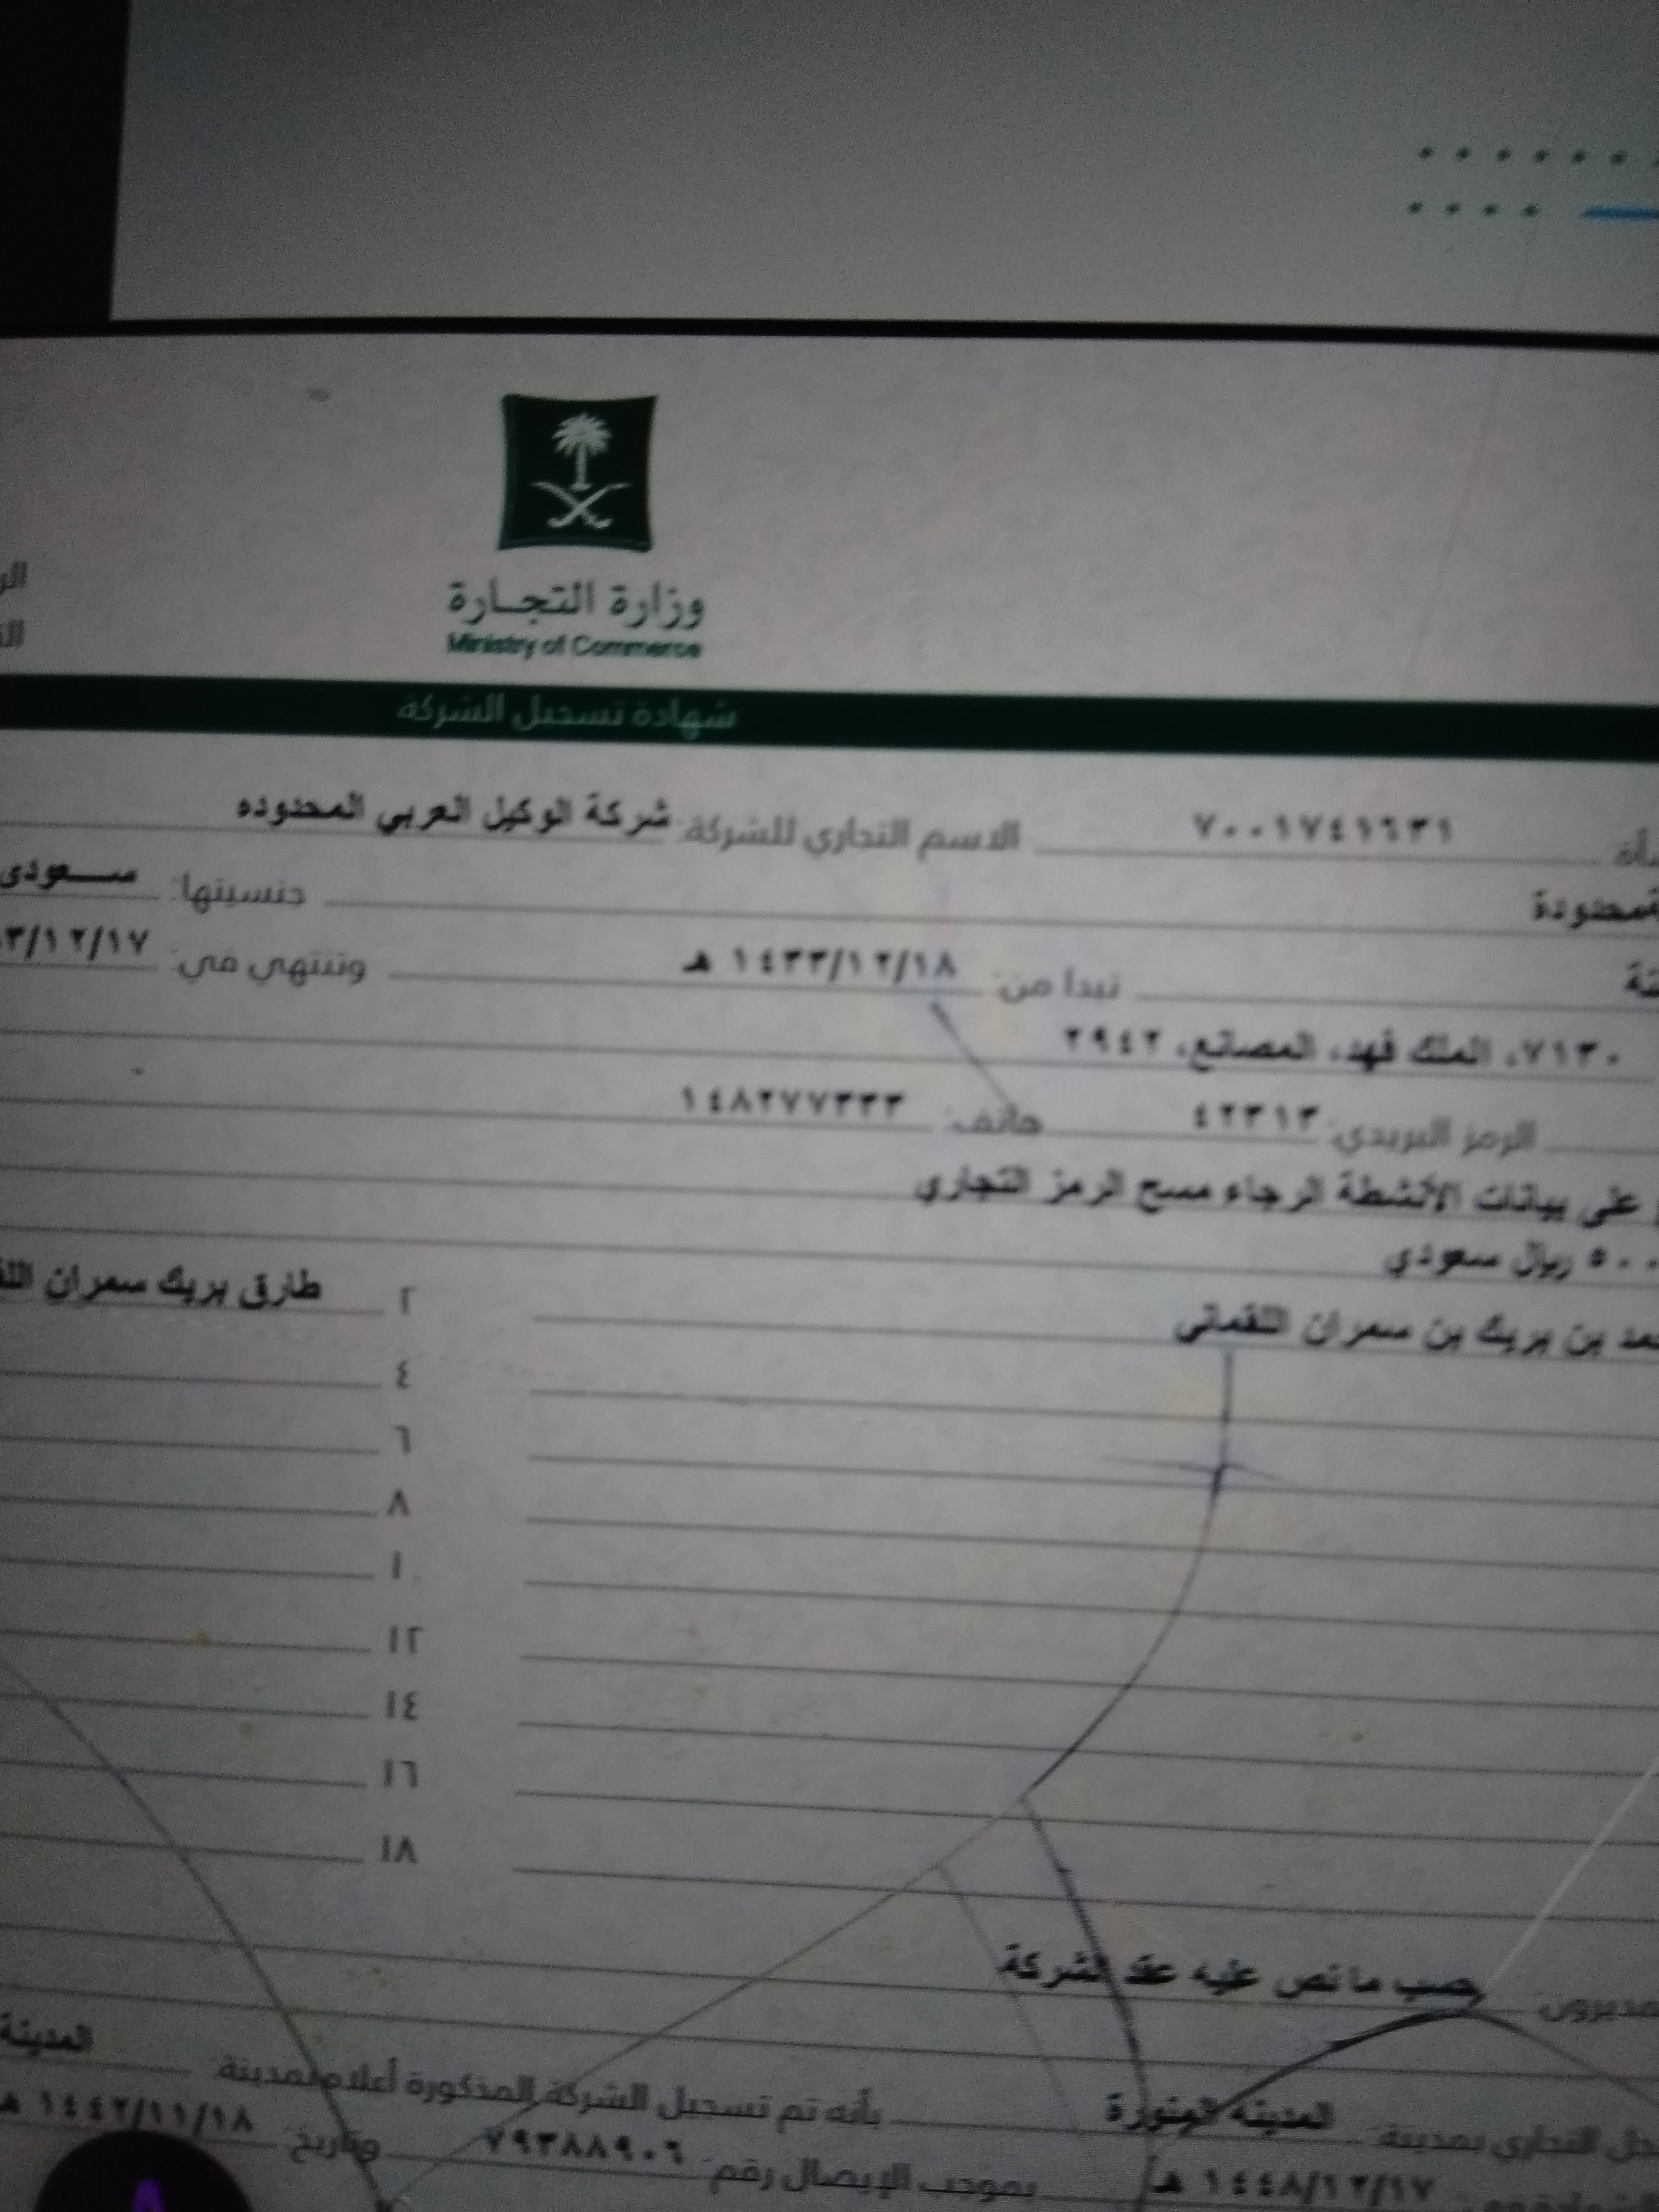 وزارة التجارة
Ministry of Commerce
شهادة تسجيل الشركة
٧٠٠١٧٤١٦٣١ الاسم التجاري للشركة: شركة الوكيل العربي المحدوده
جنسيتها: سعودي
تبدأ من: ١٤٣٣/١٢/١٨ هـ وتنتهي في: ٣/١٢/١٧
٧١٣٠، الملك فهد، المصانع، ٢٩٤٢
الرمز البريدي: ٤٢٣١٣ هاتف: ١٤٨٢٧٧٣٣٣
على بيانات الأنشطة الرجاء مسح الرمز التجاري
ريال سعودي
بن بريك بن سمران اللقماني ٢ طارق بريك سمران
٤
٦
٨
١٠
١٢
١٤
١٦
١٨
حسب ما نص عليه عقد الشركة
التجاري بمدينة: المدينه المنورة بأنه تم تسجيل الشركة المذكورة أعلاه لمدينة: المدينة
١٤٤٨/١٢/١٧ هـ بموجب الإيصال رقم: ٧٩٣٨٨٩٠٦ وتاريخ: ١٤٤٢/١١/١٨ هـ